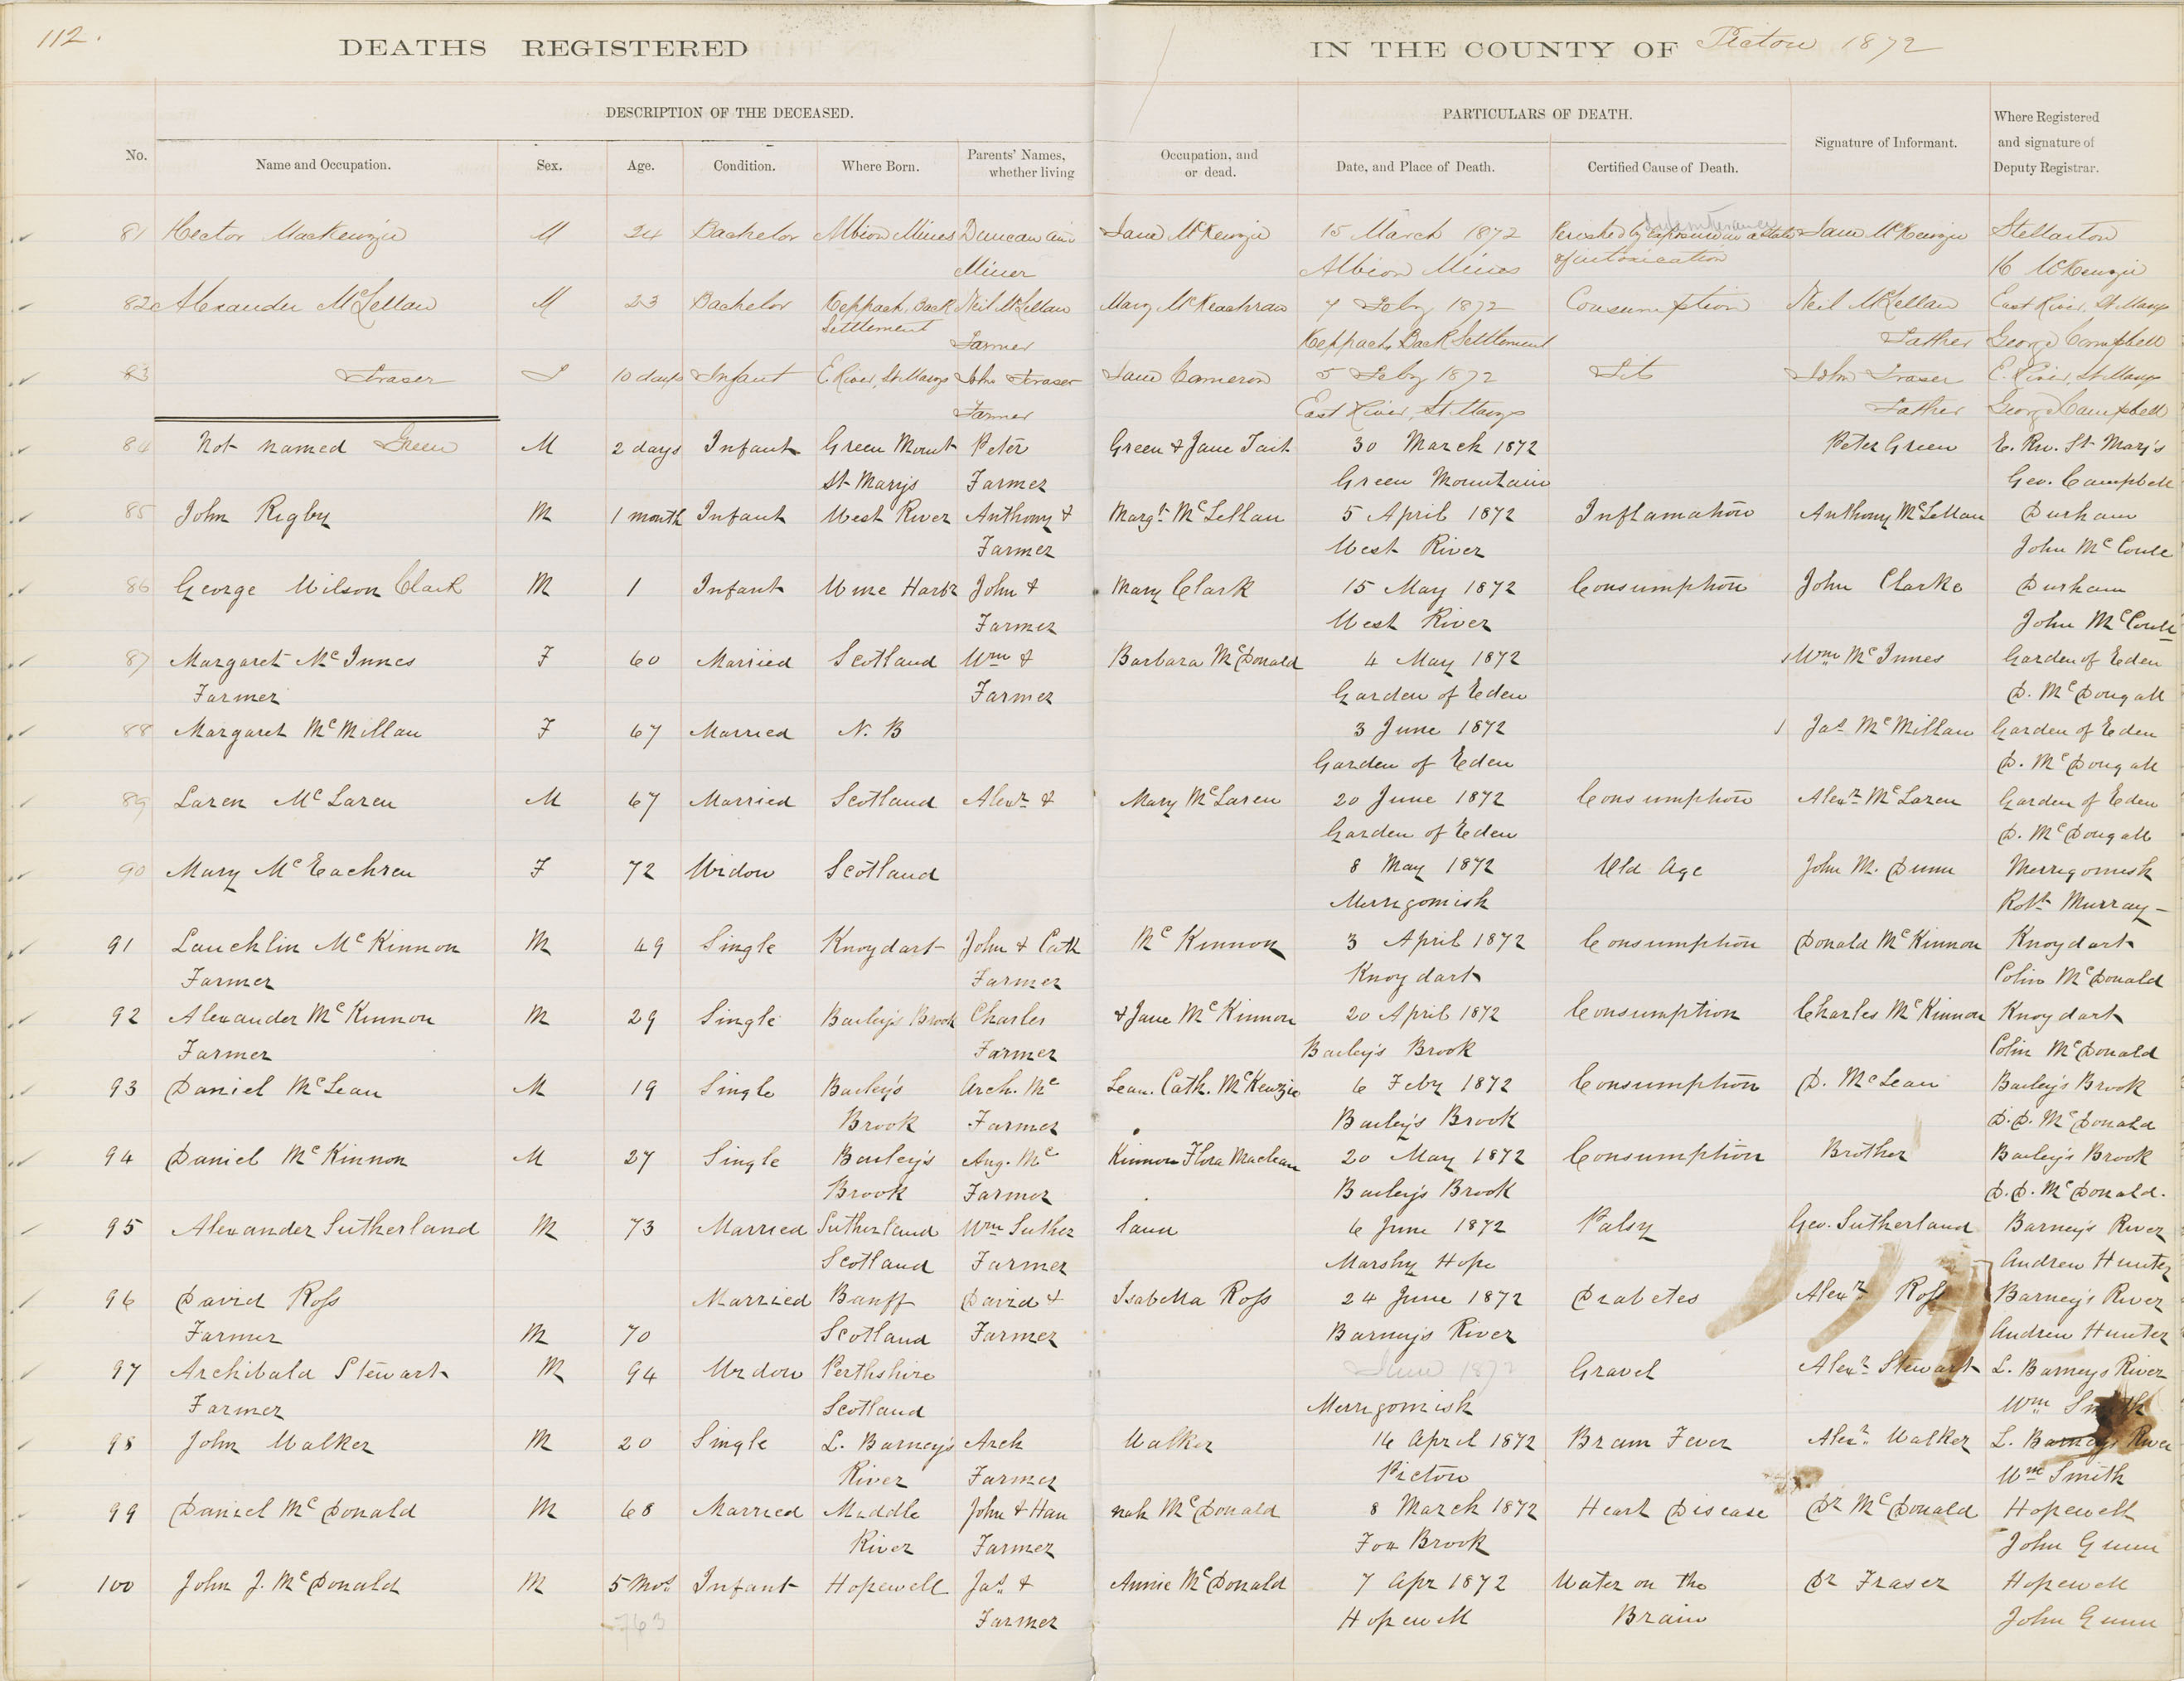 112.
DEATHS REGISTERED IN THE COUNTY OF Pictou 1872
DESCRIPTION OF THE DECEASED. PARTICULARS OF DEATH.
No. Name and Occupation. Sex. Age. Condition. Where Born. Parents' Names, whether living Occupation, and or dead. Date, and Place of Death. Certified Cause of Death. Signature of Informant. Where Registered and signature of Deputy Registrar.
81 Hector MacKenzie M 24 Bachelor Albion Mines Duncan and Jane McKenzie 15 March 1872 Perished by exposure in a state Jane McKenzie Stellarton
Miner Albion Mines of intoxication McKenzie
82 Alexander McLellan M 23 Bachelor Keppach, Back Neil McLellan Mary McKeachran 7 Feby 1872 Consumption Neil McLellan East River, St Marys
Settlement Farmer Keppach Back Settlement Father George Campbell
83 Fraser F 10 days Infant E. River, St Marys John Fraser Jane Cameron 5 Feby 1872 Fits John Fraser E. River, St Marys
Farmer East River, St Marys Father George Campbell
84 Not named Green M 2 days Infant Green Mount Peter Green & Jane Tait 30 March 1872 Peter Green E. Riv. St Mary's
St Marys Farmer Green Mountain Geo. Campbell
85 John Rigby M 1 month Infant West River Anthony & Margt McLellan 5 April 1872 Inflamation Anthony McLellan Durham
Farmer West River John McCoull
86 George Wilson Clark M 1 Infant Wine Harbr John & Mary Clark 15 May 1872 Consumption John Clarke Durham
Farmer West River John McCoull
87 Margaret McInnes F 60 Married Scotland Wm & Barbara McDonald 4 May 1872 Wm McInnes Garden of Eden
Farmer Farmer Garden of Eden D. McDougall
88 Margaret McMillan F 67 Married N. B 3 June 1872 Jas McMillan Garden of Eden
Garden of Eden D. McDougall
89 Laren McLaren M 67 Married Scotland Alexr & Mary McLaren 20 June 1872 Consumption Alexr McLaren Garden of Eden
Garden of Eden D. McDougall
90 Mary McEachren F 72 Widow Scotland 8 May 1872 Old Age John M. Dunn Merrigomish
Merrigomish Robt Murray
91 Lauchlin McKinnon M 49 Single Knoydart John & Cath McKinnon 3 April 1872 Consumption Donald McKinnon Knoydart
Farmer Farmer Knoydart Colin McDonald
92 Alexander McKinnon M 29 Single Bailey's Brook Charles & Jane McKinnon 20 April 1872 Consumption Charles McKinnon Knoydart
Farmer Farmer Bailey's Brook Colin McDonald
93 Daniel McLean M 19 Single Bailey's Arch. Mc Lean. Cath. McKenzie 6 Feby 1872 Consumption D. McLean Bailey's Brook
Brook Farmer Bailey's Brook D. D. McDonald
94 Daniel McKinnon M 27 Single Bailey's Ang. Mc Kinnon Flora Maclean 20 May 1872 Consumption Brother Bailey's Brook
Brook Farmer Bailey's Brook D. D. McDonald.
95 Alexander Sutherland M 73 Married Sutherland Wm Suther land 6 June 1872 Palsy Geo. Sutherland Barney's River
Scotland Farmer Marshy Hope Andrew Hunter
96 David Ross Married Banff David & Isabella Ross 24 June 1872 Diabetes Alexr Ross Barney's River
Farmer M 70 Scotland Farmer Barney's River Andrew Hunter
97 Archibald Stewart M 94 Widow Perthshire June 1872 Gravel Alexr Stewart L. Barneys River
Farmer Scotland Merrigomish Wm Smith
98 John Walker M 20 Single L. Barney's Arch Walker 14 April 1872 Brain Fever Alexr Walker L. Barneys River
River Farmer Pictou Wm Smith
99 Daniel McDonald M 68 Married Middle John & Han nah McDonald 8 March 1872 Heart Disease Dr McDonald Hopewell
River Farmer Fox Brook John Gunn
100 John J. McDonald M 5 Mos Infant Hopewell Jas & Annie McDonald 7 Apr 1872 Water on the Dr Fraser Hopewell
763 Farmer Hopewell Brain John Gunn